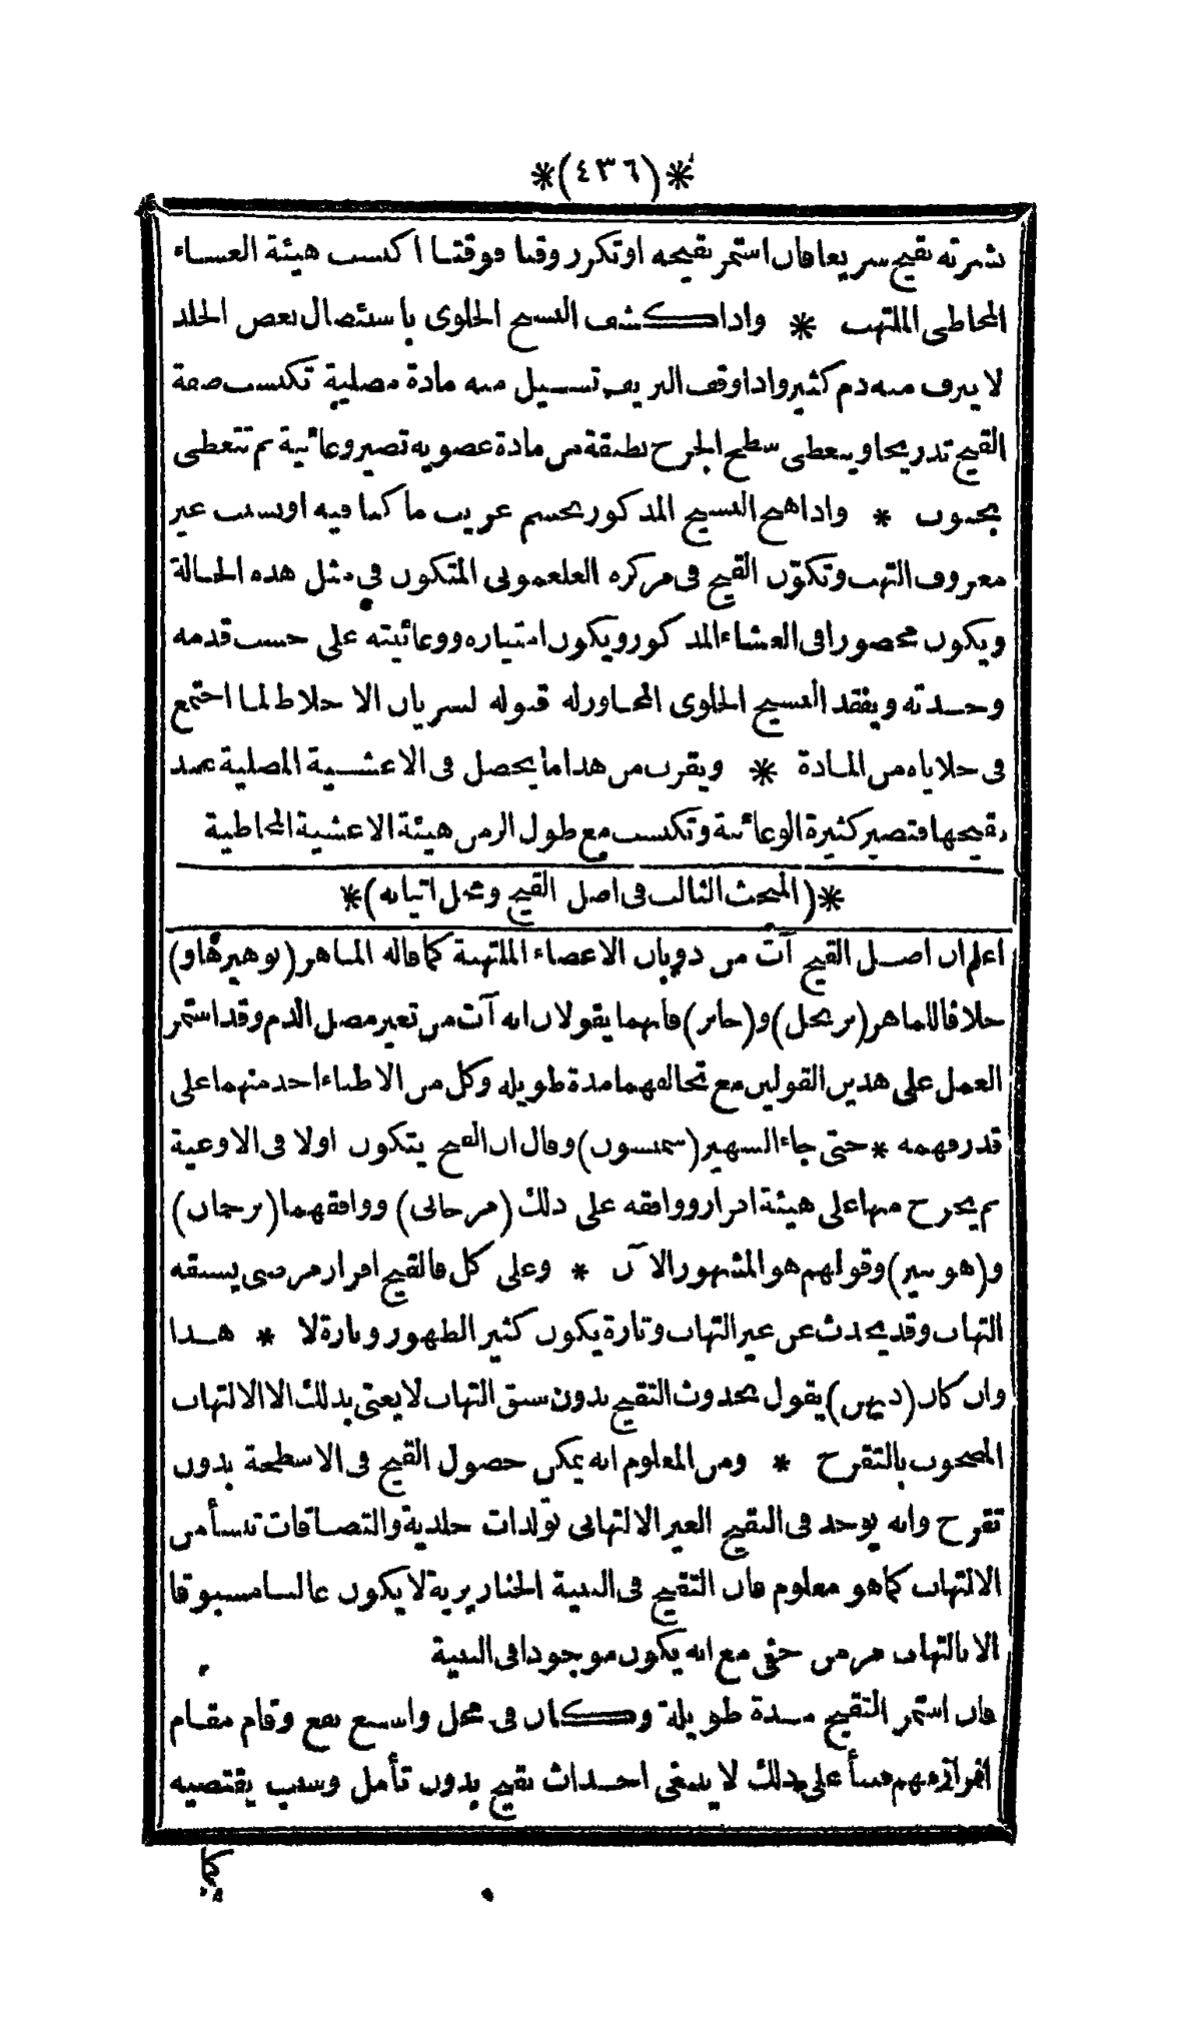 *(٤٣٦)*
بشرته تقيح سريعا فان استمر تقيحه او تكرر وقتا فوقتا اكتسب هيئة الغشاء
المخاطى الملتهب * واذا كشف النسيج الخلوى باستئصال بعض الجلد
لا ينزف منه دم كثير واذا وقف النزيف تسيل منه مادة مصلية تكتسب صفة
القيح تدريجا ويتغطى سطح الجرح بطبقة من مادة عضويه تصير وعائية ثم تتغطى
بحبوب * واذا هيج النسيج المذكور بجسم غريب ماكثا فيه او بسبب غير
معروف التهب وتكوّن القيح فى مركزه الفلغمونى المتكون فى مثل هذه الحالة
ويكون محصورا فى الغشاء المذكور ويكون امتيازه ووعائيته على حسب قدمه
وحدته ويفقد النسيج الخلوى المجاور له قبوله لسريان الاخلاط لما اجتمع
فى خلاياه من المادة * ويقرب من هذا ما يحصل فى الاغشية المصلية عند
تقيحها فتصير كثيرة الوعائية وتكتسب مع طول الزمن هيئة الاغشية المخاطية
*(المبحث الثالث فى اصل القيح ومحل اتيانه)*
اعلم ان اصل القيح آت من ذوبان الاعضاء الملتهبة كما قاله الماهر (بوهيرهاو)
خلافا للماهر (برنجل) و(جابر) فانهما يقولان انه آت من تغير مصل الدم وقد استمر
العمل على هذين القولين مع تخالفهما مدة طويله وكل من الاطباء اخذ منهما على
قدر فهمه * حتى جاء الشهير (سمبسون) وقال ان القيح يتكون اولا فى الاوعية
ثم يخرج منها على هيئة افراز ووافقه على ذلك (مرجانى) ووافقهما (برجمان)
و(هوسير) وقولهم هو المشهور الآن * وعلى كل فالقيح افراز مرضى يسبقه
التهاب وقد يحدث عن غير التهاب وتارة يكون كثير الظهور وتارة لا * هذا
وان كان (ديهن) يقول بحدوث التقيح بدون سبق التهاب لا يعنى بذلك الا الالتهاب
المصحوب بالتقرح * ومن المعلوم انه يمكن حصول القيح فى الاسطحة بدون
تقرح وانه يوجد فى التقيح الغير الالتهابى تولدات جلدية والتصاقات تنشأ من
الالتهاب كما هو معلوم فان التقيح فى البنية الخنازيرية لا يكون غالبا مسبوقا
الا بالتهاب مزمن خفى مع انه يكون موجودا فى البنية
فان استمر التقيح مدة طويلة وكان فى محل واسع نفع وقام مقام
افراز مهم فبنأ على ذلك لا ينبغى احداث تقيح بدون تأمل وسبب يقتضيه
كما